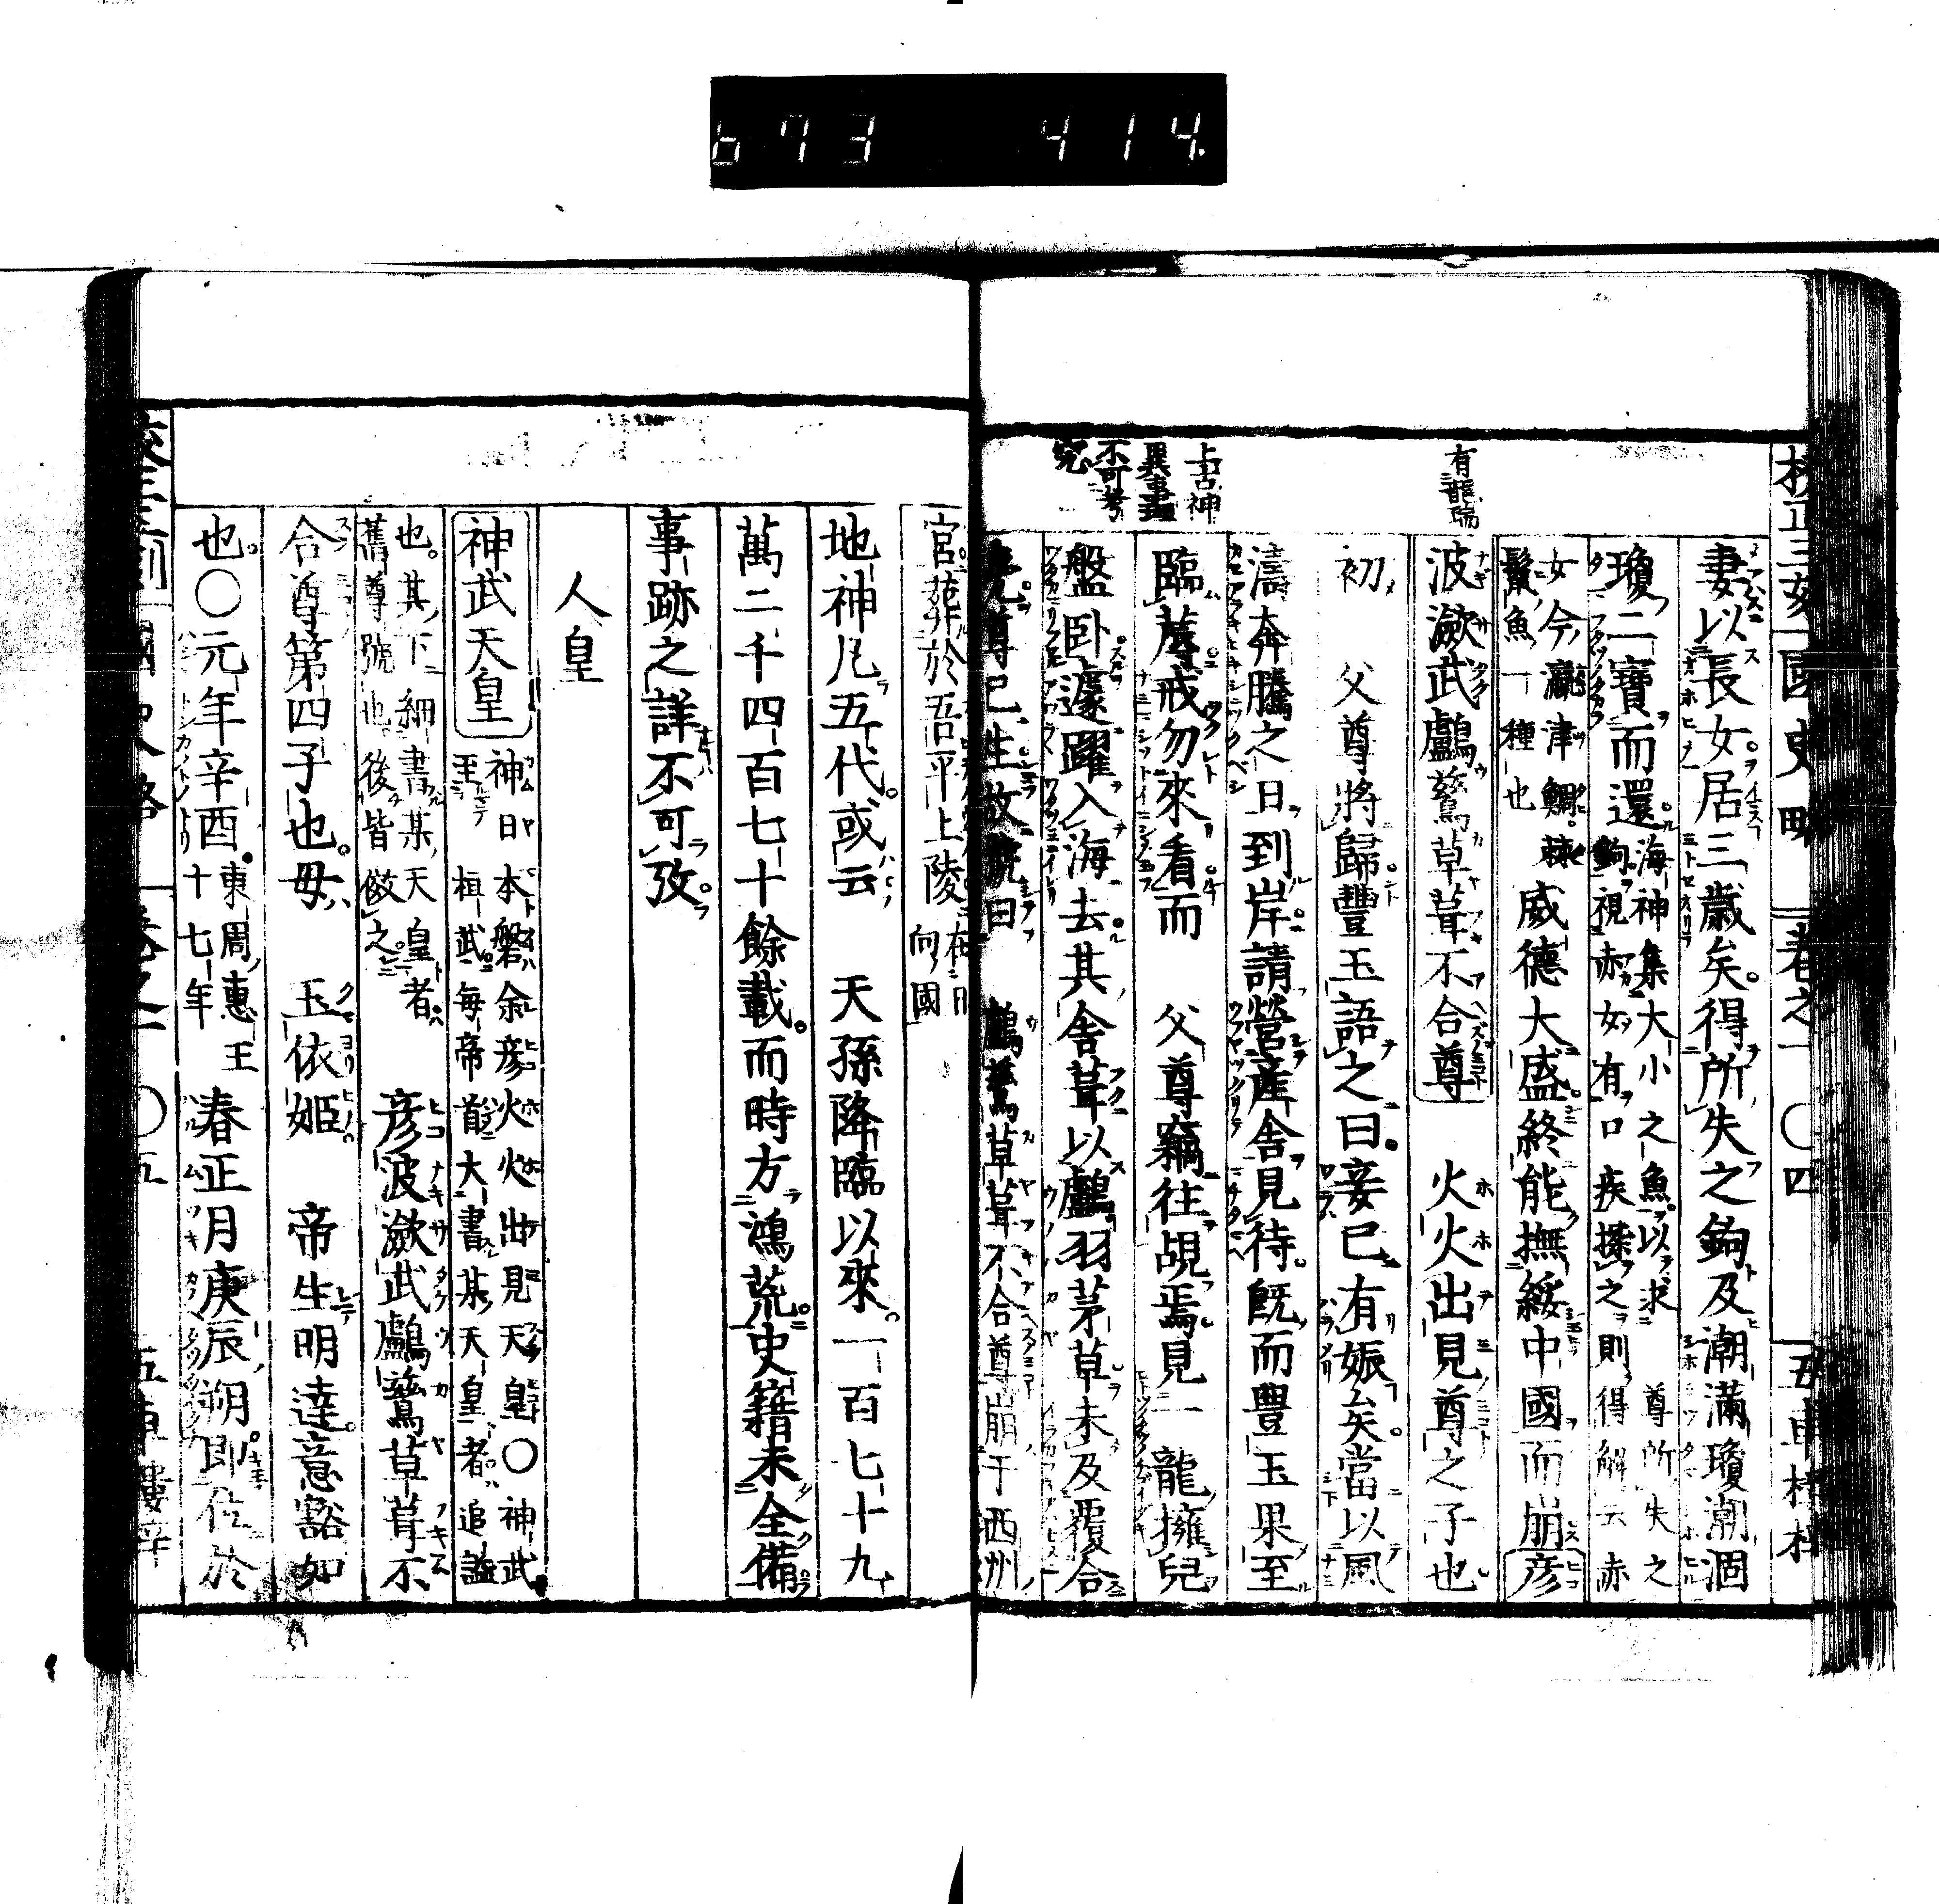 673 414.
校正三刻國史略 卷之一 〇四 五車樓梓
妻以長女居三歲矣得所失之鉤及潮滿瓊潮涸
瓊二寶而還海神集大小之魚以求
鉤視赤女有口疾探之則得
尊所失之
解云赤
女今瀛津鯛
鬣魚一種也
威德大盛終能撫綏中國而崩彥
波瀲武鸕鶿草葺不合尊 火火出見尊之子也
有龍瑞
初 父尊將歸豐玉語之曰妾已有娠矣當以風
濤奔騰之日到岸請營產舍見待既而豐玉果至
臨蓐戒勿來看而 父尊竊往覘焉見一龍擁兒
上古神
異事
不可考
究
盤臥遽躍入海去其舍葺以鸕羽茅草未及覆合
尊已生故號曰 鸕鶿草葺不合尊崩于西洲
宮葬於吾平上陵在日
向國
地神凡五代或云 天孫降臨以來一百七十九
萬二千四百七十餘載而時方鴻荒史籍未全備
事跡之詳不可攷
人皇
神武天皇
神日本磐余彥火火出見天皇〇神武
至桓武每帝首大書某天皇者追謚
也其下細書某天皇者
舊尊號也後皆傚之
彥波瀲武鸕鶿草葺不
合尊第四子也母 玉依姬 帝生明達意豁如
也〇元年辛酉東周惠王
十七年
春正月庚辰朔即位於
國史略 卷之一 〇五 五車樓梓